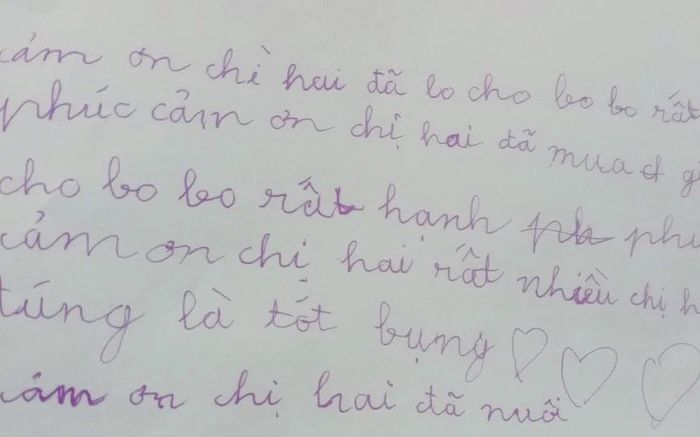 cảm ơn chỉ hai đã lo cho bo bo rất
phúc cảm ơn chị hai đã mua
cho bo bo rất hạnh
cảm ơn chị hai rất nhiều chị
túng là tốt bụng
cảm ơn chị hai đã nuôi